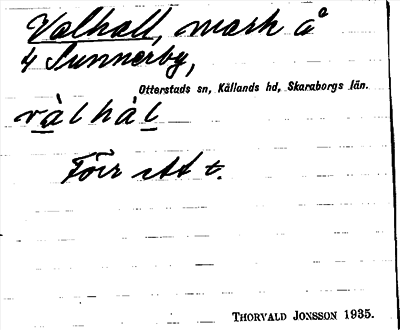 Valhall, mark å
4 Sunnerby,
Otterstads sn, Kållands hd, Skaraborgs län.
vàlhàl
Förr ett t.
THORVALD JONSSON 1935.